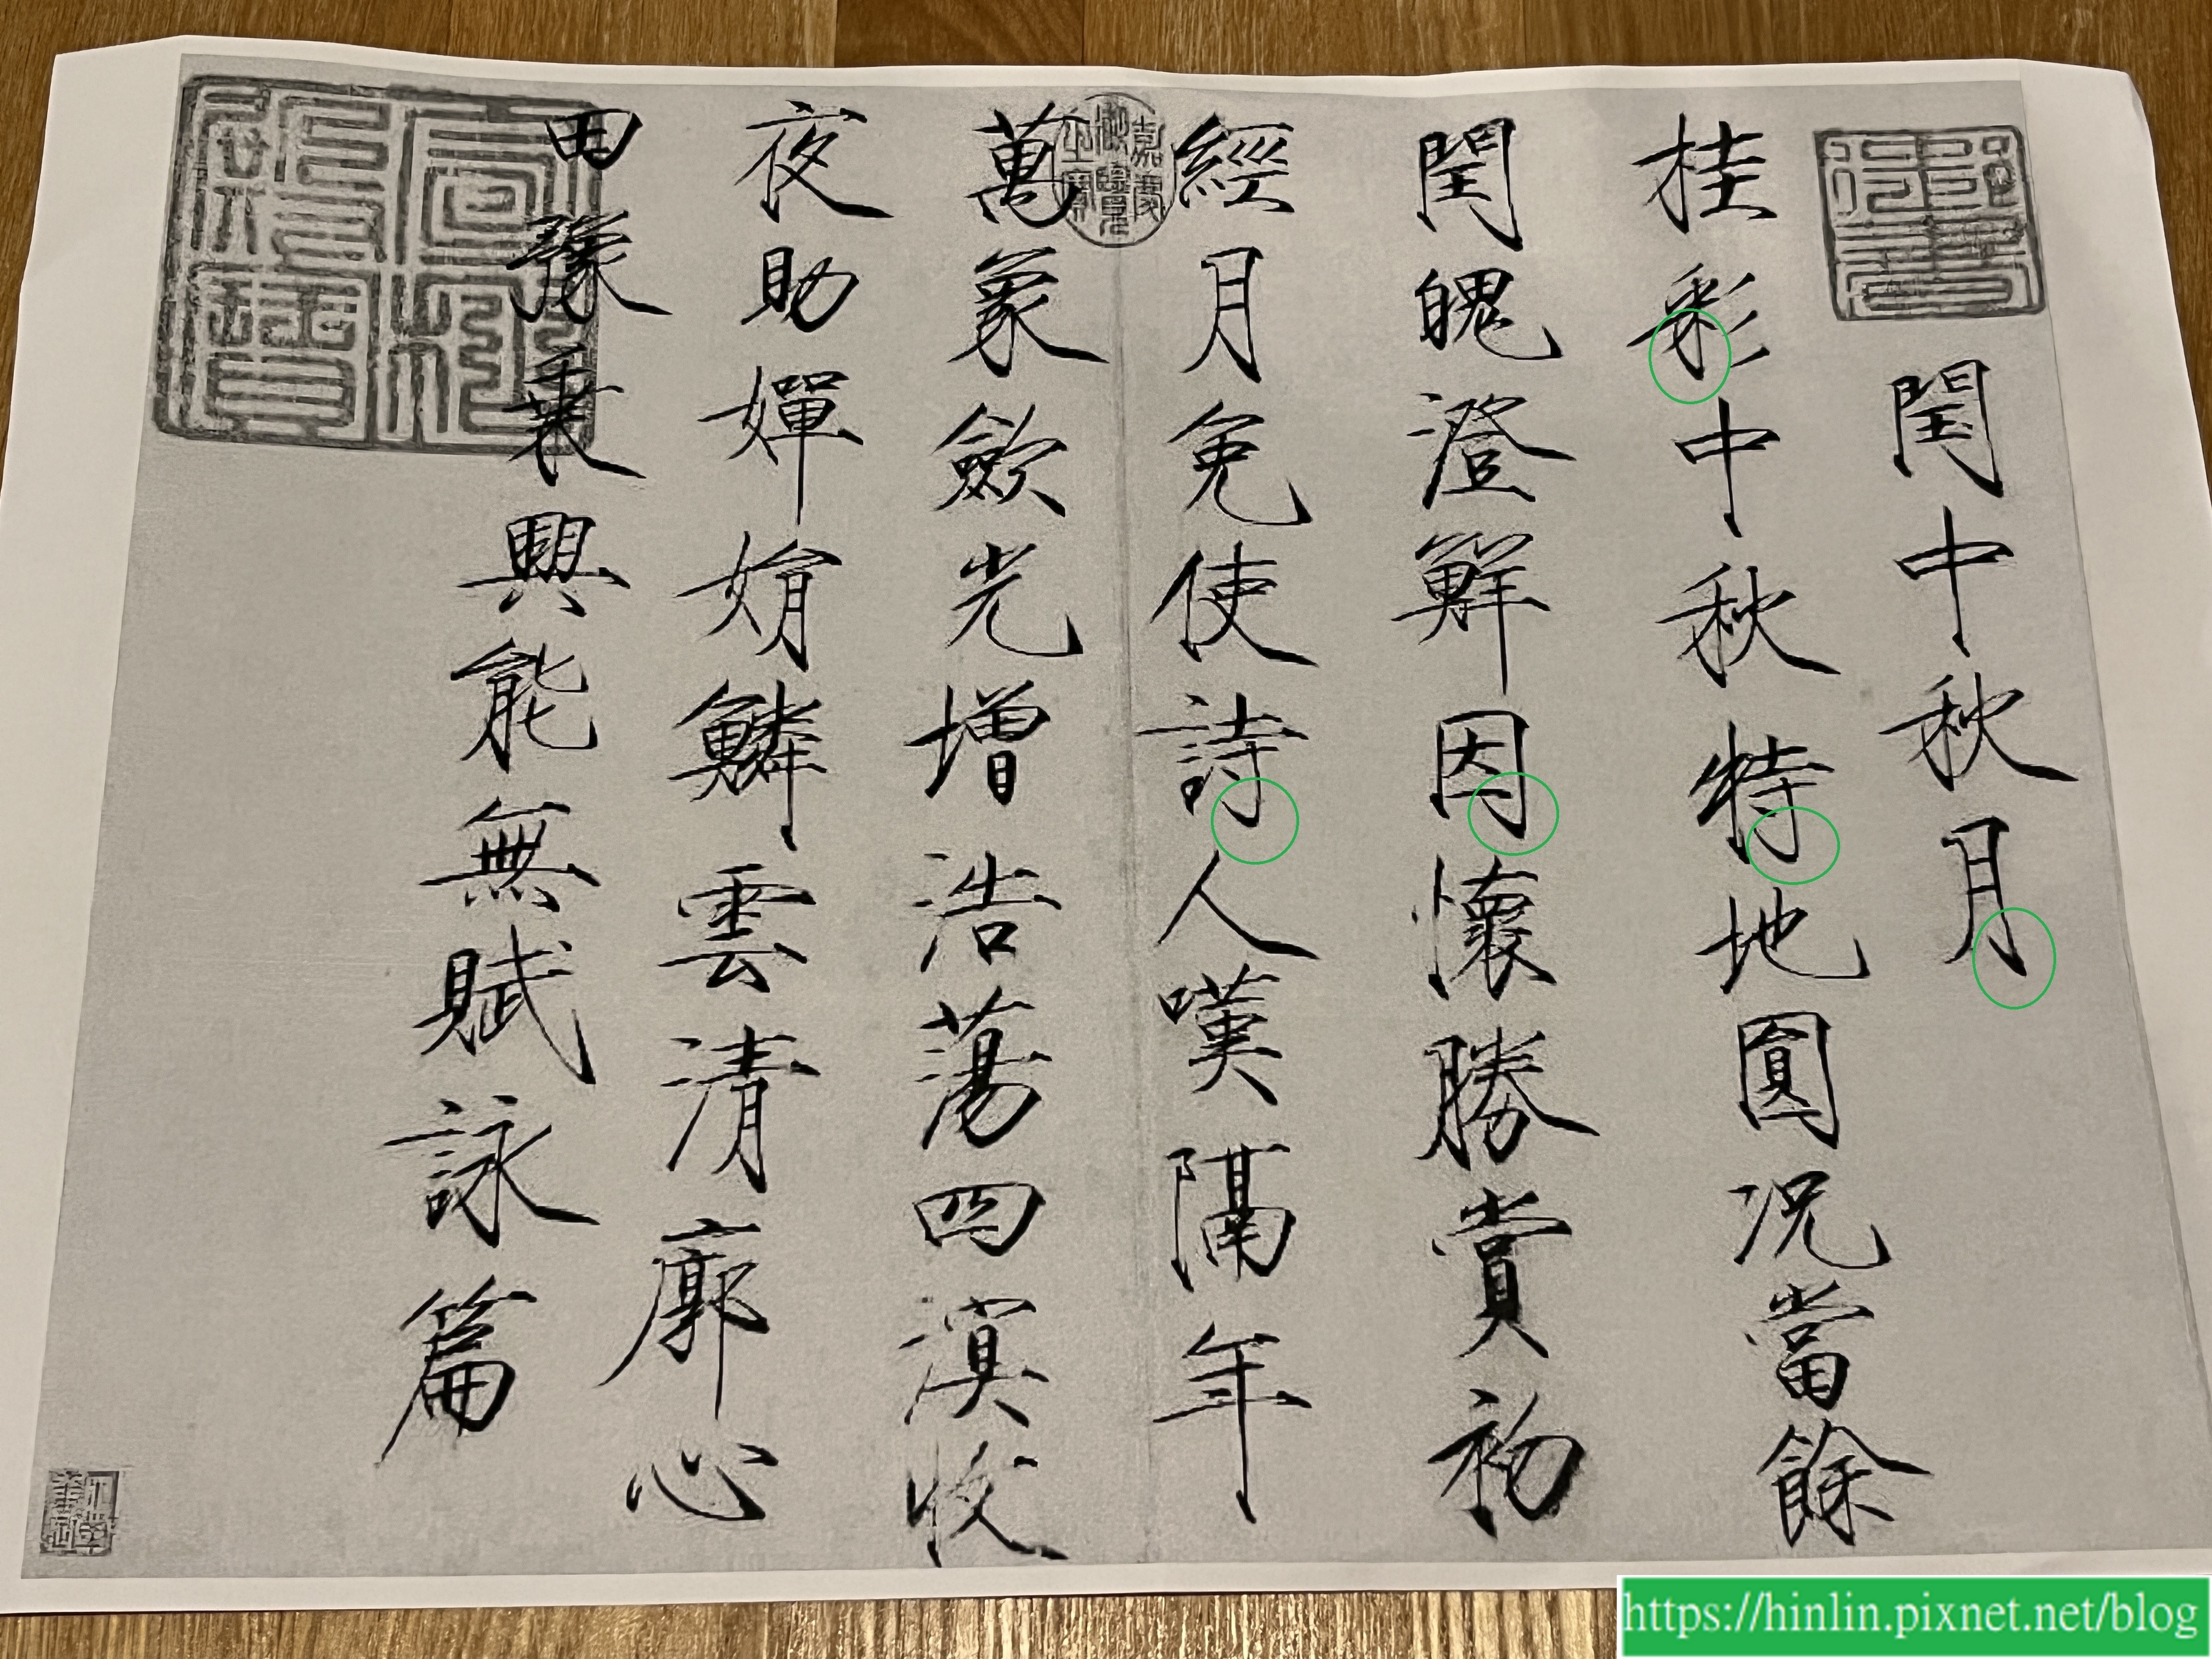 御書
閏中秋月
桂彩中秋特地圓况當餘
閏魄澄鮮因懷勝賞初
經月免使詩人嘆隔年
萬象歛光增浩蕩四溟收
夜助嬋娟鱗雲清廓心
田豫乗興能無賦詠篇
https://hinlin.pixnet.net/blog